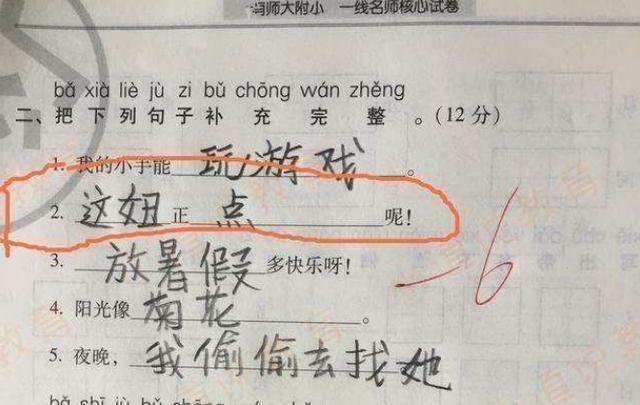 冯师大附小 一线名师核心试卷
bǎ xià liè jù zi bǔ chōng wán zhěng
二、把下列句子补充完整。(12分)
1. 我的小手能玩游戏。
2. 这妞正点呢!
3. 放暑假多快乐呀!
4. 阳光像菊花。
5. 夜晚，我偷偷去找她
-6